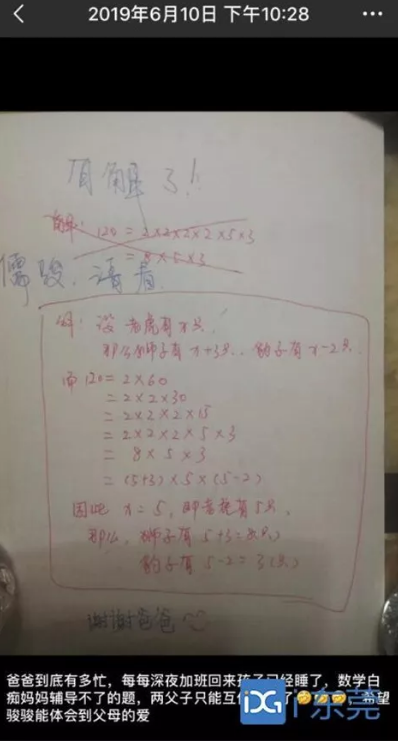 2019年6月10日 下午10:28
有解了!!
解: 120 = 2×2×2×2×5×3
= 8×5×3
儒骏,请看
解: 设老虎有x只,
那么狮子有x+3只, 豹子有x-2只.
而120 = 2×60
= 2×2×30
= 2×2×2×15
= 2×2×2×5×3
= 8×5×3
= (5+3)×5×(5-2)
因此 x=5, 即老虎有5只,
那么, 狮子有 5+3=8(只)
豹子有 5-2=3(只)
谢谢爸爸
爸爸到底有多忙,每每深夜加班回来孩子已经睡了,数学白
痴妈妈辅导不了的题,两父子只能互
了
希望
骏骏能体会到父母的爱
i东莞